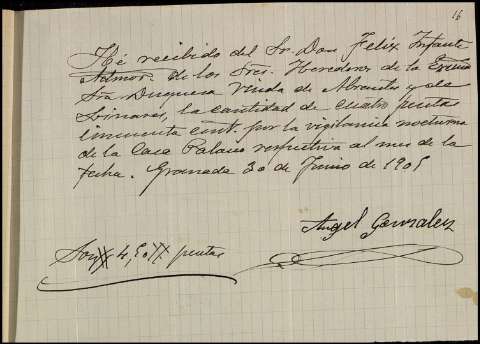 16
Hé recibido del Sr. Don Felix Infante
Admor. de los Sres. Herederos de la Exma
Sra Duquesa Viuda de Abrantes y de
Linares, la cantidad de cuatro pesetas
cincuenta cent. por la vigilancia nocturna
de la Casa Palacio respectiva al mes de la
fecha. Granada 30 de Junio de 1905
Angel Gonzalez
Son 4,50 pesetas